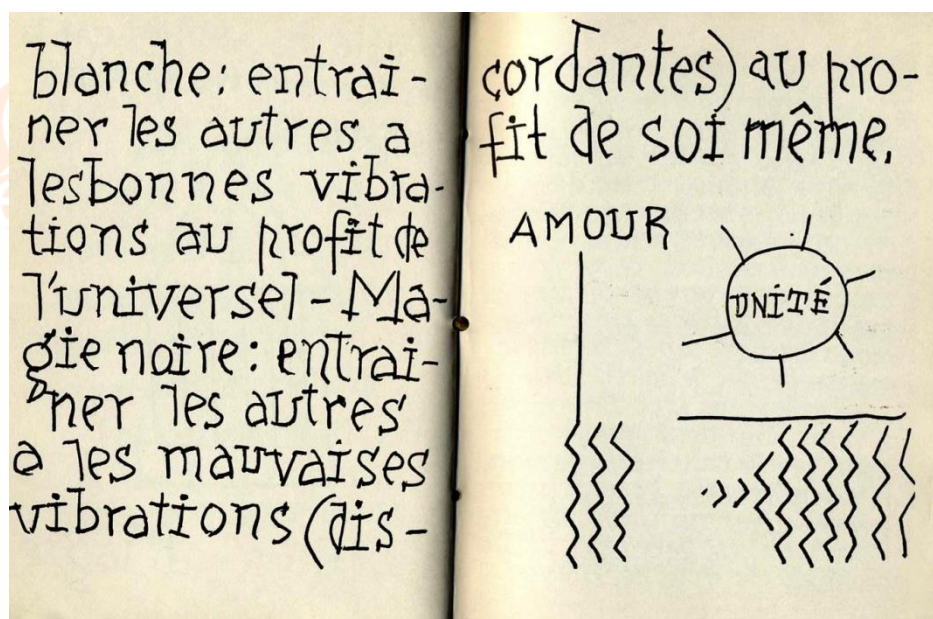 blanche: entrai-
ner les autres a
lesbonnes vibra-
tions au profit de
l'universel - Ma-
gie noire: entrai-
ner les autres
a les mauvaises
vibrations (dis-
çordantes) au pro-
fit de soi même.
AMOUR
UNİTÉ